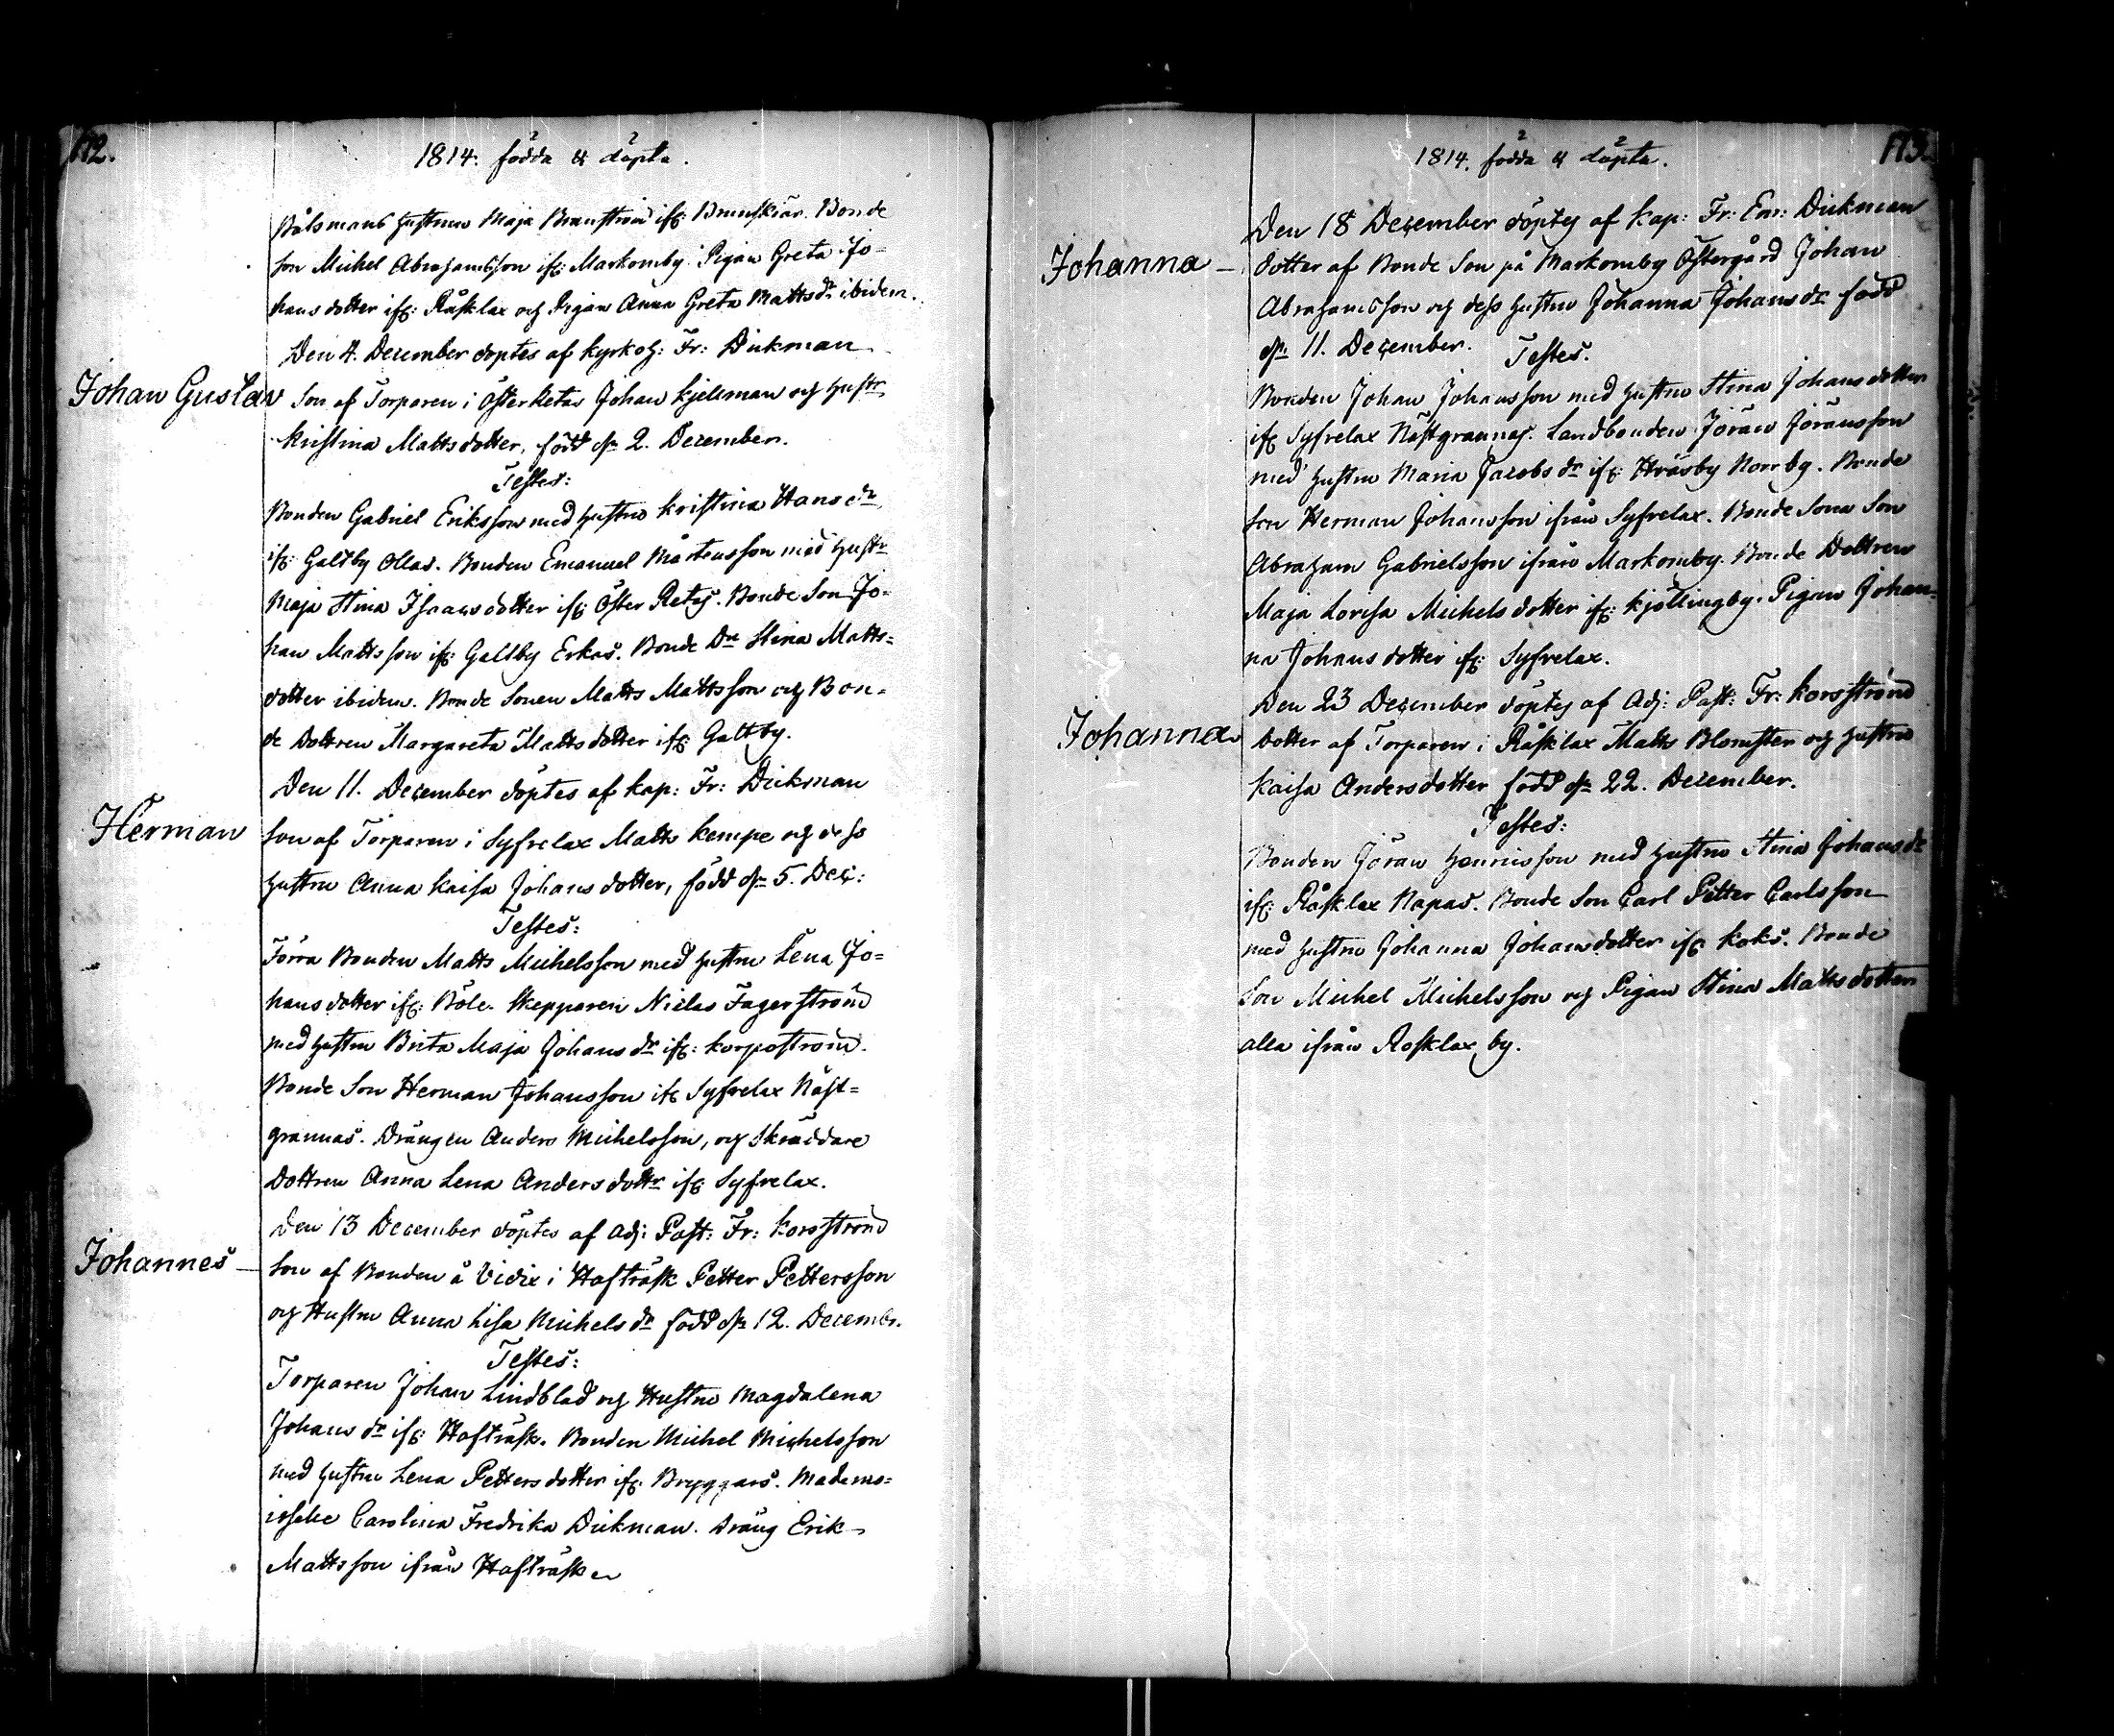 172.
1814. födda & döpta.
Båtsmans hustrun Maja Brunström ifr: Brunskiär. Bonde
son Michel Abrahamsson ifr: Markomby. Pigan Greta Jo-
hans dotter ifr: Råsklax och Pigan Anna Greta Matts dr ibidem.
Johan Gustav
Den 4. December döptes af kyrkoh: Fr: Dickman
Son af Torparen i Österretais Johan Kjellman och hustr
Kristina Mattsdotter, född dn 2. December.
Testes:
Bonden Gabriel Eriksson med hustru Kristina Hans dr
ifr: Galtby Ollas. Bonden Emanuel Mårtensson med hustr
Maja Stina Isaacsdotter ifr: Öster Retais. Bonde Son Jo-
han Mattsson ifr: Galtby Erkas. Bonde Dn Stina Matts-
dotter ibidem. Bonde Sonen Matts Mattsson och Bon-
de Dottren Margareta Mattsdotter ifr: Galtby.
Herman
Den 11. December döptes af Kap: Fr: Dickman
son af Torparen i Syfrelax Matts Kempe och dess
hustru Anna Kaisa Johansdotter, född dn 5. Dec:
Testes:
Förra Bonden Matts Michelsson med hustru Lena Jo-
hansdotter ifr: Böle. Skepparen Niclas Fagerström
med hustru Brita Maja Johans dr ifr: Korpoström.
Bonde Son Herman Johansson ifr Syfrelax Näst-
grannas. Drängen Anders Michelsson, och Skräddare
Dottren Anna Lena Anders dottr ifr: Syfrelax.
Johannes —
Den 13 December döptes af Adj: Past: Fr: Korsström
son af Bonden å Vidix i Hafträsk Petter Pettersson
och Hustru Anna Lisa Michels dr född dn 12. Decembr.
Testes:
Torparen Johan Lindblad och Hustru Magdalena
Johans dr ifr: Hafträsk. Bonden Michel Michelsson
med hustru Lena Pettersdotter ifr: Bryggars. Mademo-
iselle Carolina Fredrika Dickman. Dräng Erik
Mattsson ifrån Hafträsk
173.
1814. födda & döpta.
Johanna —
Den 18 December döptes af Kap: Fr: Em: Dickman
dotter af Bonde Son på Markomby Östergård Johan
Abrahamsson och dess hustru Johanna Johans dr född
dn 11. December.
Testes.
Bonden Johan Johansson med hustru Stina Johansdotter
ifr Syfrelax Nästgrannas. Landbonden Jöran Jöransson
med hustru Maria Jacobs dr ifr: Wräsby Norrby. Bonde
Son Herman Johansson ifrån Syfrelax. Bonde Sona Son
Abraham Gabrielsson ifrån Markomby. Bonde Dottren
Maja Lovisa Michelsdotter ifr: Kjöllingby. Pigan Johan-
na Johansdotter ifr: Syfrelax.
Johanna
Den 23 December döptes af Adj: Past: Fr: Korsström
dotter af Torparen i Råsklax Matts Blomster och hustru
Kaisa Andersdotter född dn 22. December.
Testes:
Bonden Jöran Henricsson med hustru Stina Johans dr
ifr: Råsklax Napas. Bonde Son Carl Petter Carlsson
med hustru Johanna Johansdotter ifr Koks. Bonde
Son Michel Michelsson och Pigan Stina Mattsdotter
alla ifrån Rosklax by.